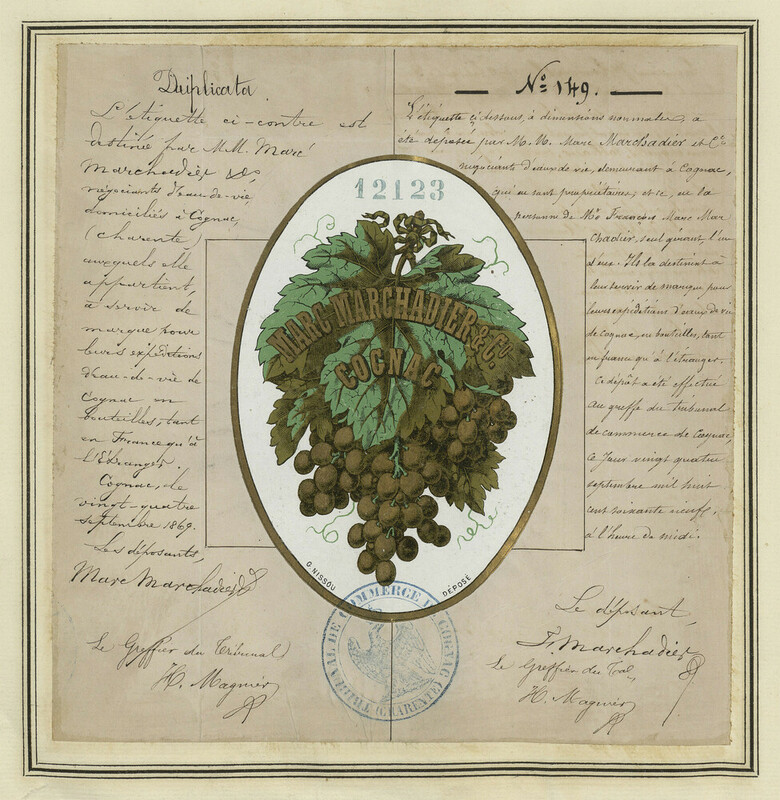 Duplicata
L'étiquette ci-contre est
destinée par M.M. Marc
Marchadier & Co
négociants d'eau-de-vie
domiciliés à Cognac,
(Charente)
auxquels elle
appartient,
à servir de
marque pour
leurs expéditions
d'eau-de-vie de
Cognac en
bouteilles, tant
en France qu'à
l'Etranger.
Cognac, le
vingt-quatre
septembre 1869.
Les déposants,
Marc Marchadier & Co
Le Greffier du Tribunal
H. Magnier
12123
MARC MARCHADIER & Cie
COGNAC
G. NISSOU
DÉPOSÉ
TRIBUNAL DE COMMERCE DE COGNAC
(CHARENTE)
No 149.
L'étiquette ci dessous, à dimensions normales, a
été déposée par M.M. Marc Marchadier et Cie
négociants d'eaux de vie, demeurant à Cognac,
qui en sont propriétaires, et ce, en la
personne de Mr François Marc Mar
chadier, seul gérant, l'un
d'eux. Ils la destinent à
leur servir de marque, pour
leurs expéditions d'eaux de vie
de cognac, en bouteilles, tant
en france qu'à l'étranger.
Ce dépôt a été effectué
au greffe du Tribunal
de commerce de Cognac,
ce jour vingt quatre
septembre mil huit
cent soixante neuf,
à l'heure de midi.
Le déposant,
F. Marchadier
Le Greffier du Tal,
H. Magnier